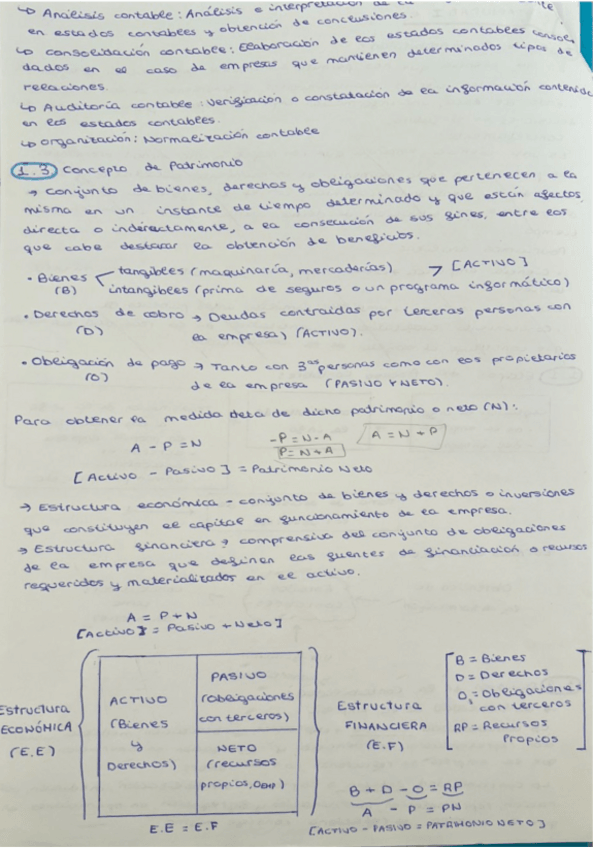 ↳ Análisis contable: Análisis e interpretación de
en estados contables y obtención de conclusiones.
↳ Consolidación contable: Elaboración de los estados contables consoli
dados en el caso de empresas que mantienen determinados tipos de
relaciones.
↳ Auditoría contable: Verificación o constatación de la información contenida
en los estados contables.
↳ Organización: Normalización contable
1.3 Concepto de Patrimonio
→ Conjunto de bienes, derechos y obligaciones que pertenecen a la
misma en un instante de tiempo determinado y que están afectos,
directa o indirectamente, a la consecución de sus fines, entre los
que cabe destacar la obtención de beneficios.
• Bienes (B) tangibles (maquinaria, mercaderías) → [ACTIVO]
intangibles (prima de seguros o un programa informático)
• Derechos de cobro → Deudas contraídas por terceras personas con
(D) la empresa) (ACTIVO).
• Obligación de pago → Tanto con 3ᵃˢ personas como con los propietarios
(O) de la empresa (PASIVO Y NETO).
Para obtener la medida de dicho patrimonio o neto (N):
A - P = N
-P = N - A
P = N + A
A = N + P
[Activo - Pasivo] = Patrimonio Neto
→ Estructura económica - conjunto de bienes y derechos o inversiones
que constituyen el capital en funcionamiento de la empresa.
→ Estructura financiera → comprensiva del conjunto de obligaciones
de la empresa que definen las fuentes de financiación o recursos
requeridos y materializados en el activo.
A = P + N
[Activo] = Pasivo + Neto]
Estructura
ECONÓMICA
(E.E)
ACTIVO
(Bienes
y
Derechos)
PASIVO
(obligaciones
con terceros)
NETO
(recursos
propios,
E.E = E.F
Estructura
FINANCIERA
(E.F)
B = Bienes
D = Derechos
O = Obligaciones
con terceros
RP = Recursos
Propios
B + D - O = RP
A - P = PN
[ACTIVO - PASIVO = PATRIMONIO NETO]